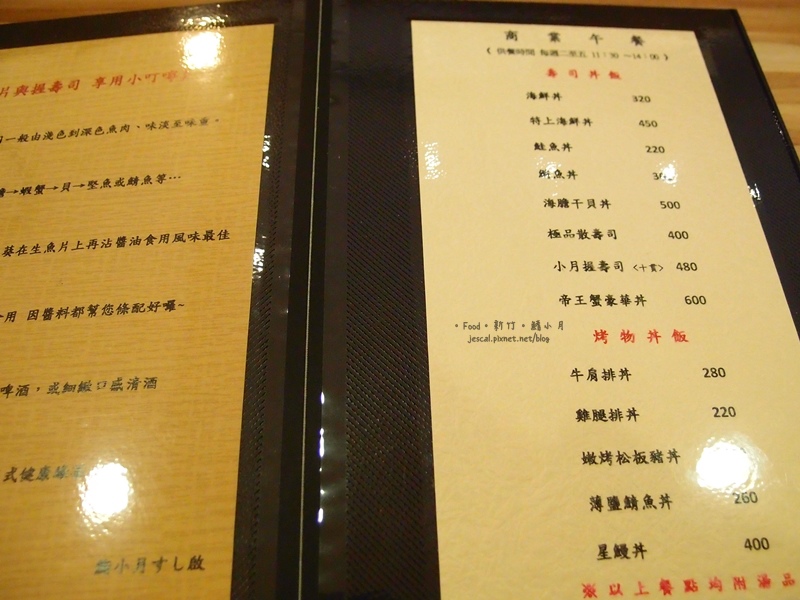 片與握壽司 享用小叮嚀
一般由淺色到深色魚肉、味淡至味重。
→蝦蟹→貝→堅魚或鯖魚等…
在生魚片上再沾醬油食用風味最佳
用 因醬料都幫您條配好囉~
啤酒，或細緻口感清酒
式健康
小月すし啟
商業午餐
( 供餐時間 每週二至五 11:30 ~14:00 )
壽司丼飯
海鮮丼 320
特上海鮮丼 450
鮭魚丼 220
魚丼
海膽干貝丼 500
極品散壽司 400
小月握壽司 <十貫> 480
帝王蟹豪華丼 600
。Food。新竹。鱻小月
jescal.pixnet.net/blog
烤物丼飯
牛肩排丼 280
雞腿排丼 220
嫩烤松板豬丼
薄鹽鯖魚丼 260
星鰻丼 400
※以上餐點均附湯品